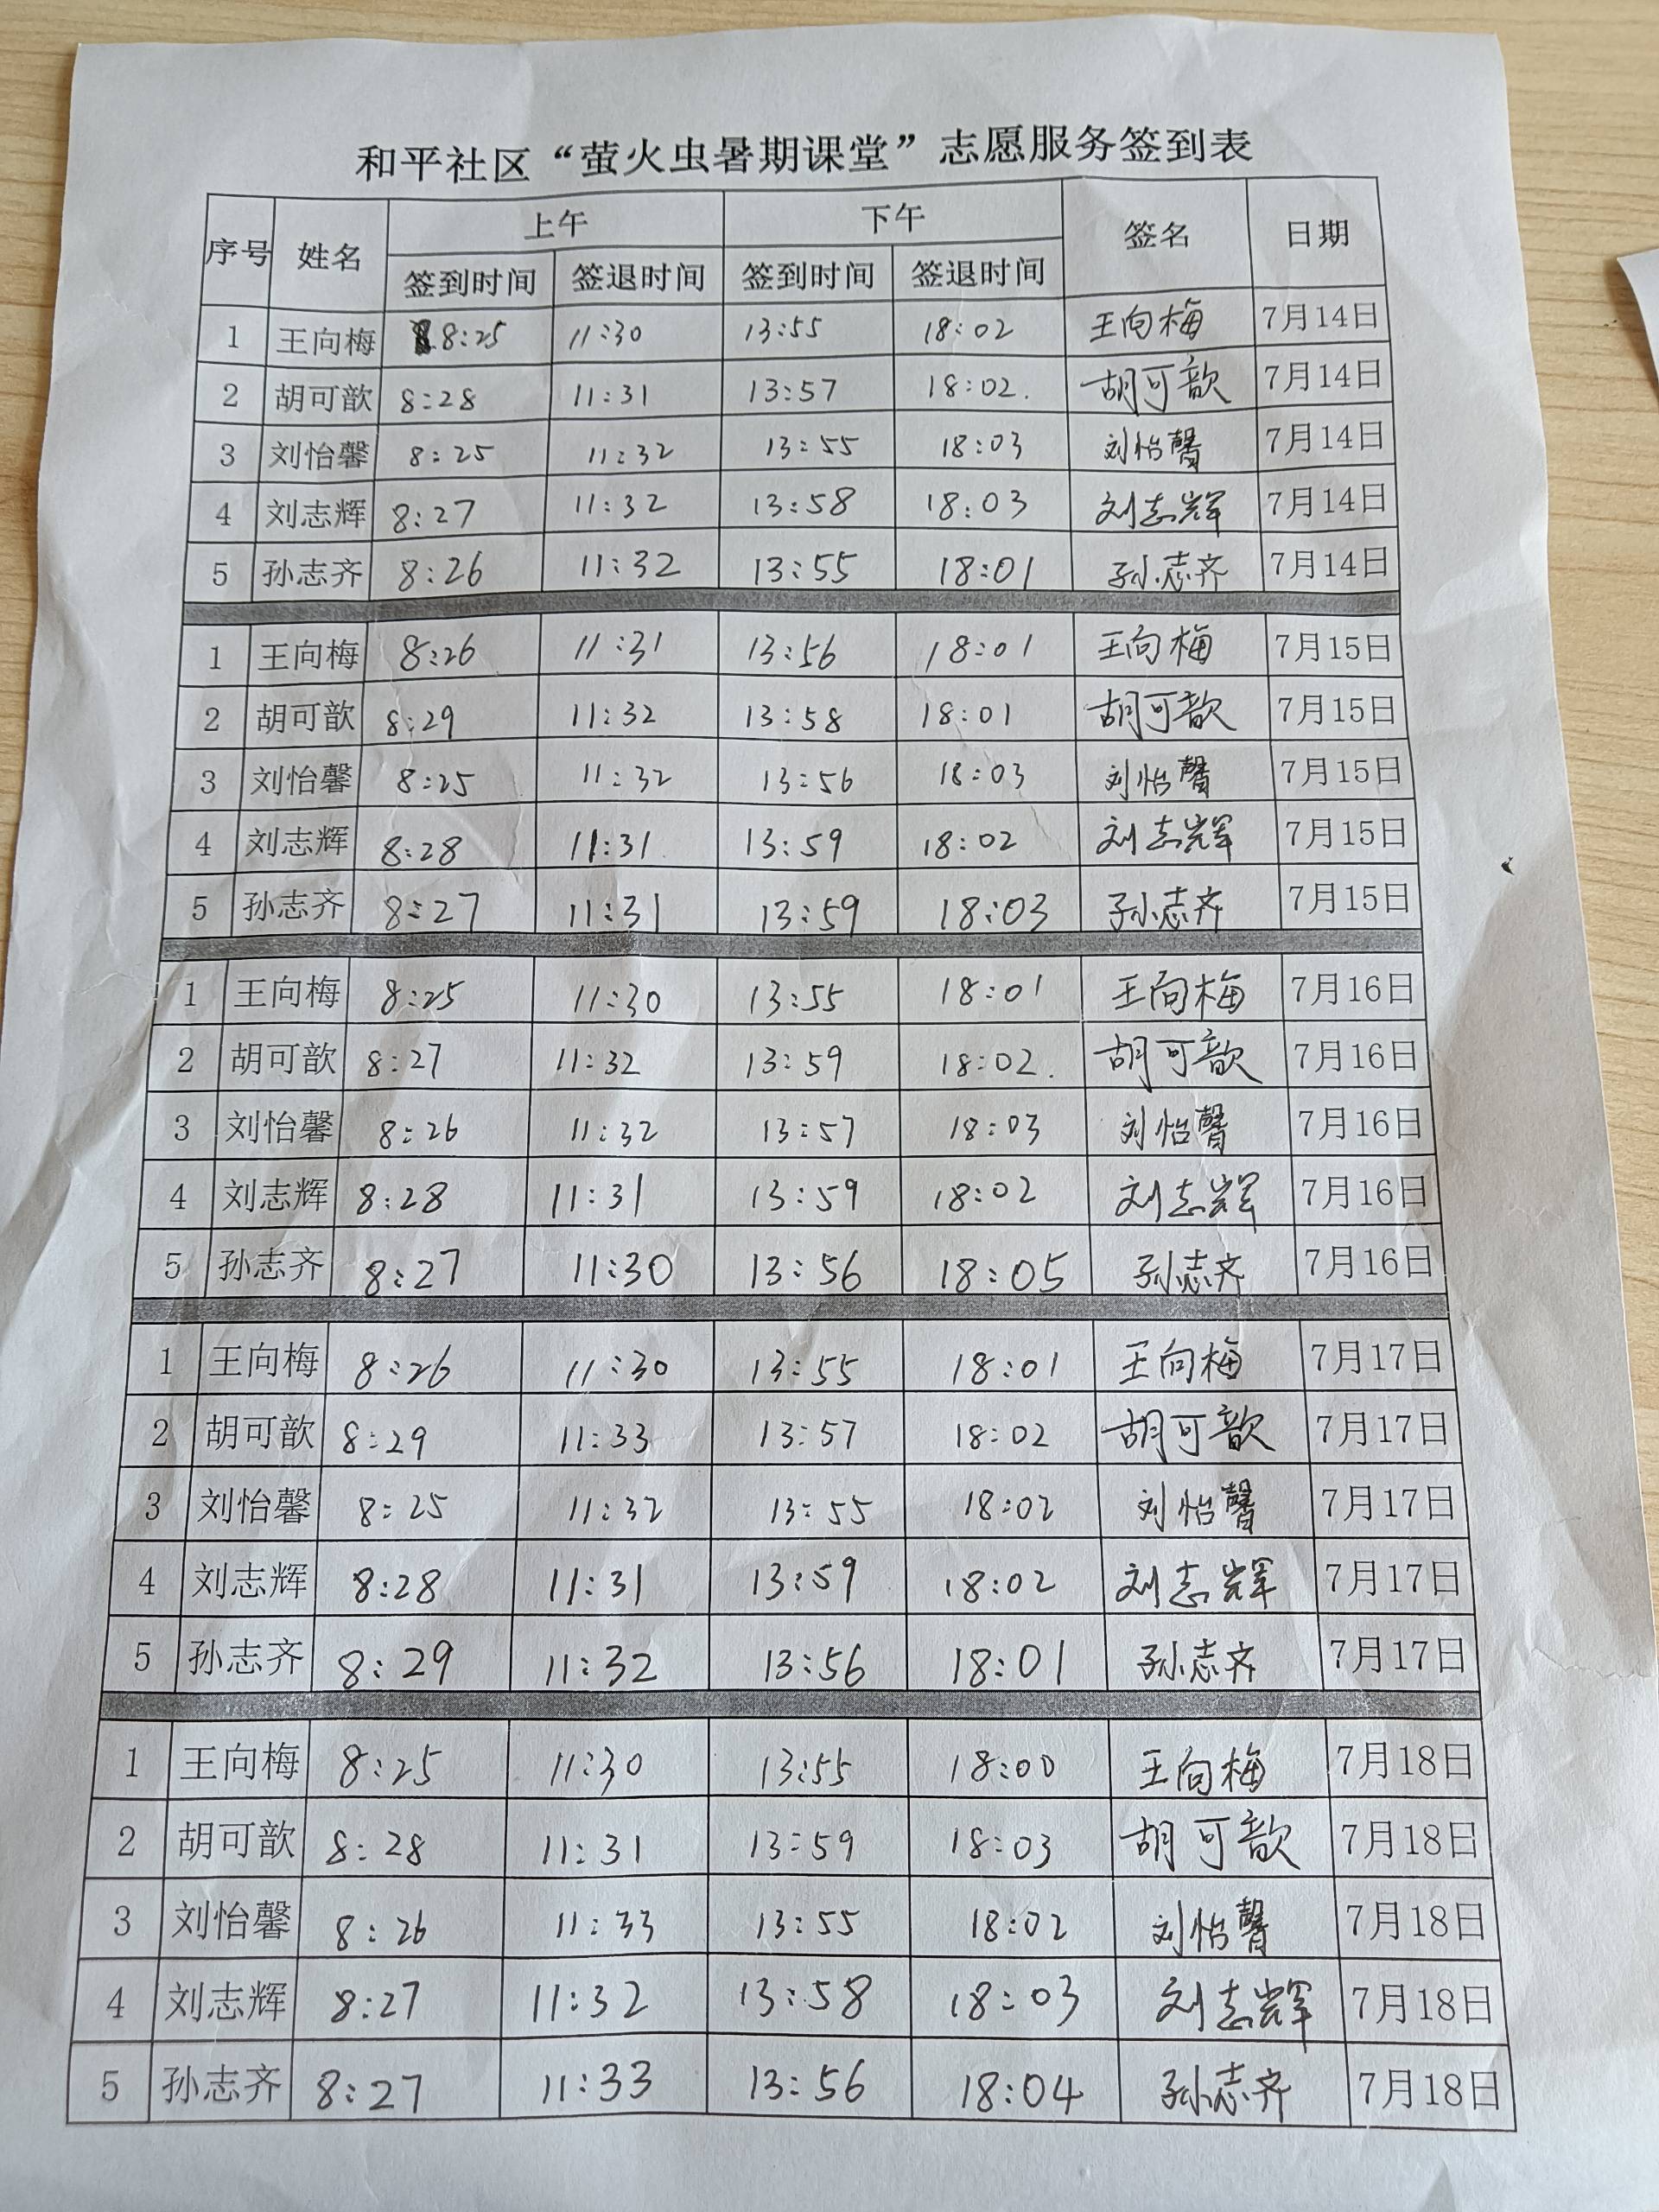 和平社区“萤火虫暑期课堂”志愿服务签到表
序号 姓名 上午 下午 签名 日期
签到时间 签退时间 签到时间 签退时间
1 王向梅 8:25 11:30 13:55 18:02 王向梅 7月14日
2 胡可歆 8:28 11:31 13:57 18:02. 胡可歆 7月14日
3 刘怡馨 8:25 11:32 13:55 18:03 刘怡馨 7月14日
4 刘志辉 8:27 11:32 13:58 18:03 刘志辉 7月14日
5 孙志齐 8:26 11:32 13:55 18:01 孙志齐 7月14日
1 王向梅 8:26 11:31 13:56 18:01 王向梅 7月15日
2 胡可歆 8:29 11:32 13:58 18:01 胡可歆 7月15日
3 刘怡馨 8:25 11:32 13:56 18:03 刘怡馨 7月15日
4 刘志辉 8:28 11:31 13:59 18:02 刘志辉 7月15日
5 孙志齐 8:27 11:31 13:59 18:03 孙志齐 7月15日
1 王向梅 8:25 11:30 13:55 18:01 王向梅 7月16日
2 胡可歆 8:27 11:32 13:59 18:02. 胡可歆 7月16日
3 刘怡馨 8:26 11:32 13:57 18:03 刘怡馨 7月16日
4 刘志辉 8:28 11:31 13:59 18:02 刘志辉 7月16日
5 孙志齐 8:27 11:30 13:56 18:05 孙志齐 7月16日
1 王向梅 8:26 11:30 13:55 18:01 王向梅 7月17日
2 胡可歆 8:29 11:33 13:57 18:02 胡可歆 7月17日
3 刘怡馨 8:25 11:32 13:55 18:02 刘怡馨 7月17日
4 刘志辉 8:28 11:31 13:59 18:02 刘志辉 7月17日
5 孙志齐 8:29 11:32 13:56 18:01 孙志齐 7月17日
1 王向梅 8:25 11:30 13:55 18:00 王向梅 7月18日
2 胡可歆 8:28 11:31 13:59 18:03 胡可歆 7月18日
3 刘怡馨 8:26 11:33 13:55 18:02 刘怡馨 7月18日
4 刘志辉 8:27 11:32 13:58 18:03 刘志辉 7月18日
5 孙志齐 8:27 11:33 13:56 18:04 孙志齐 7月18日